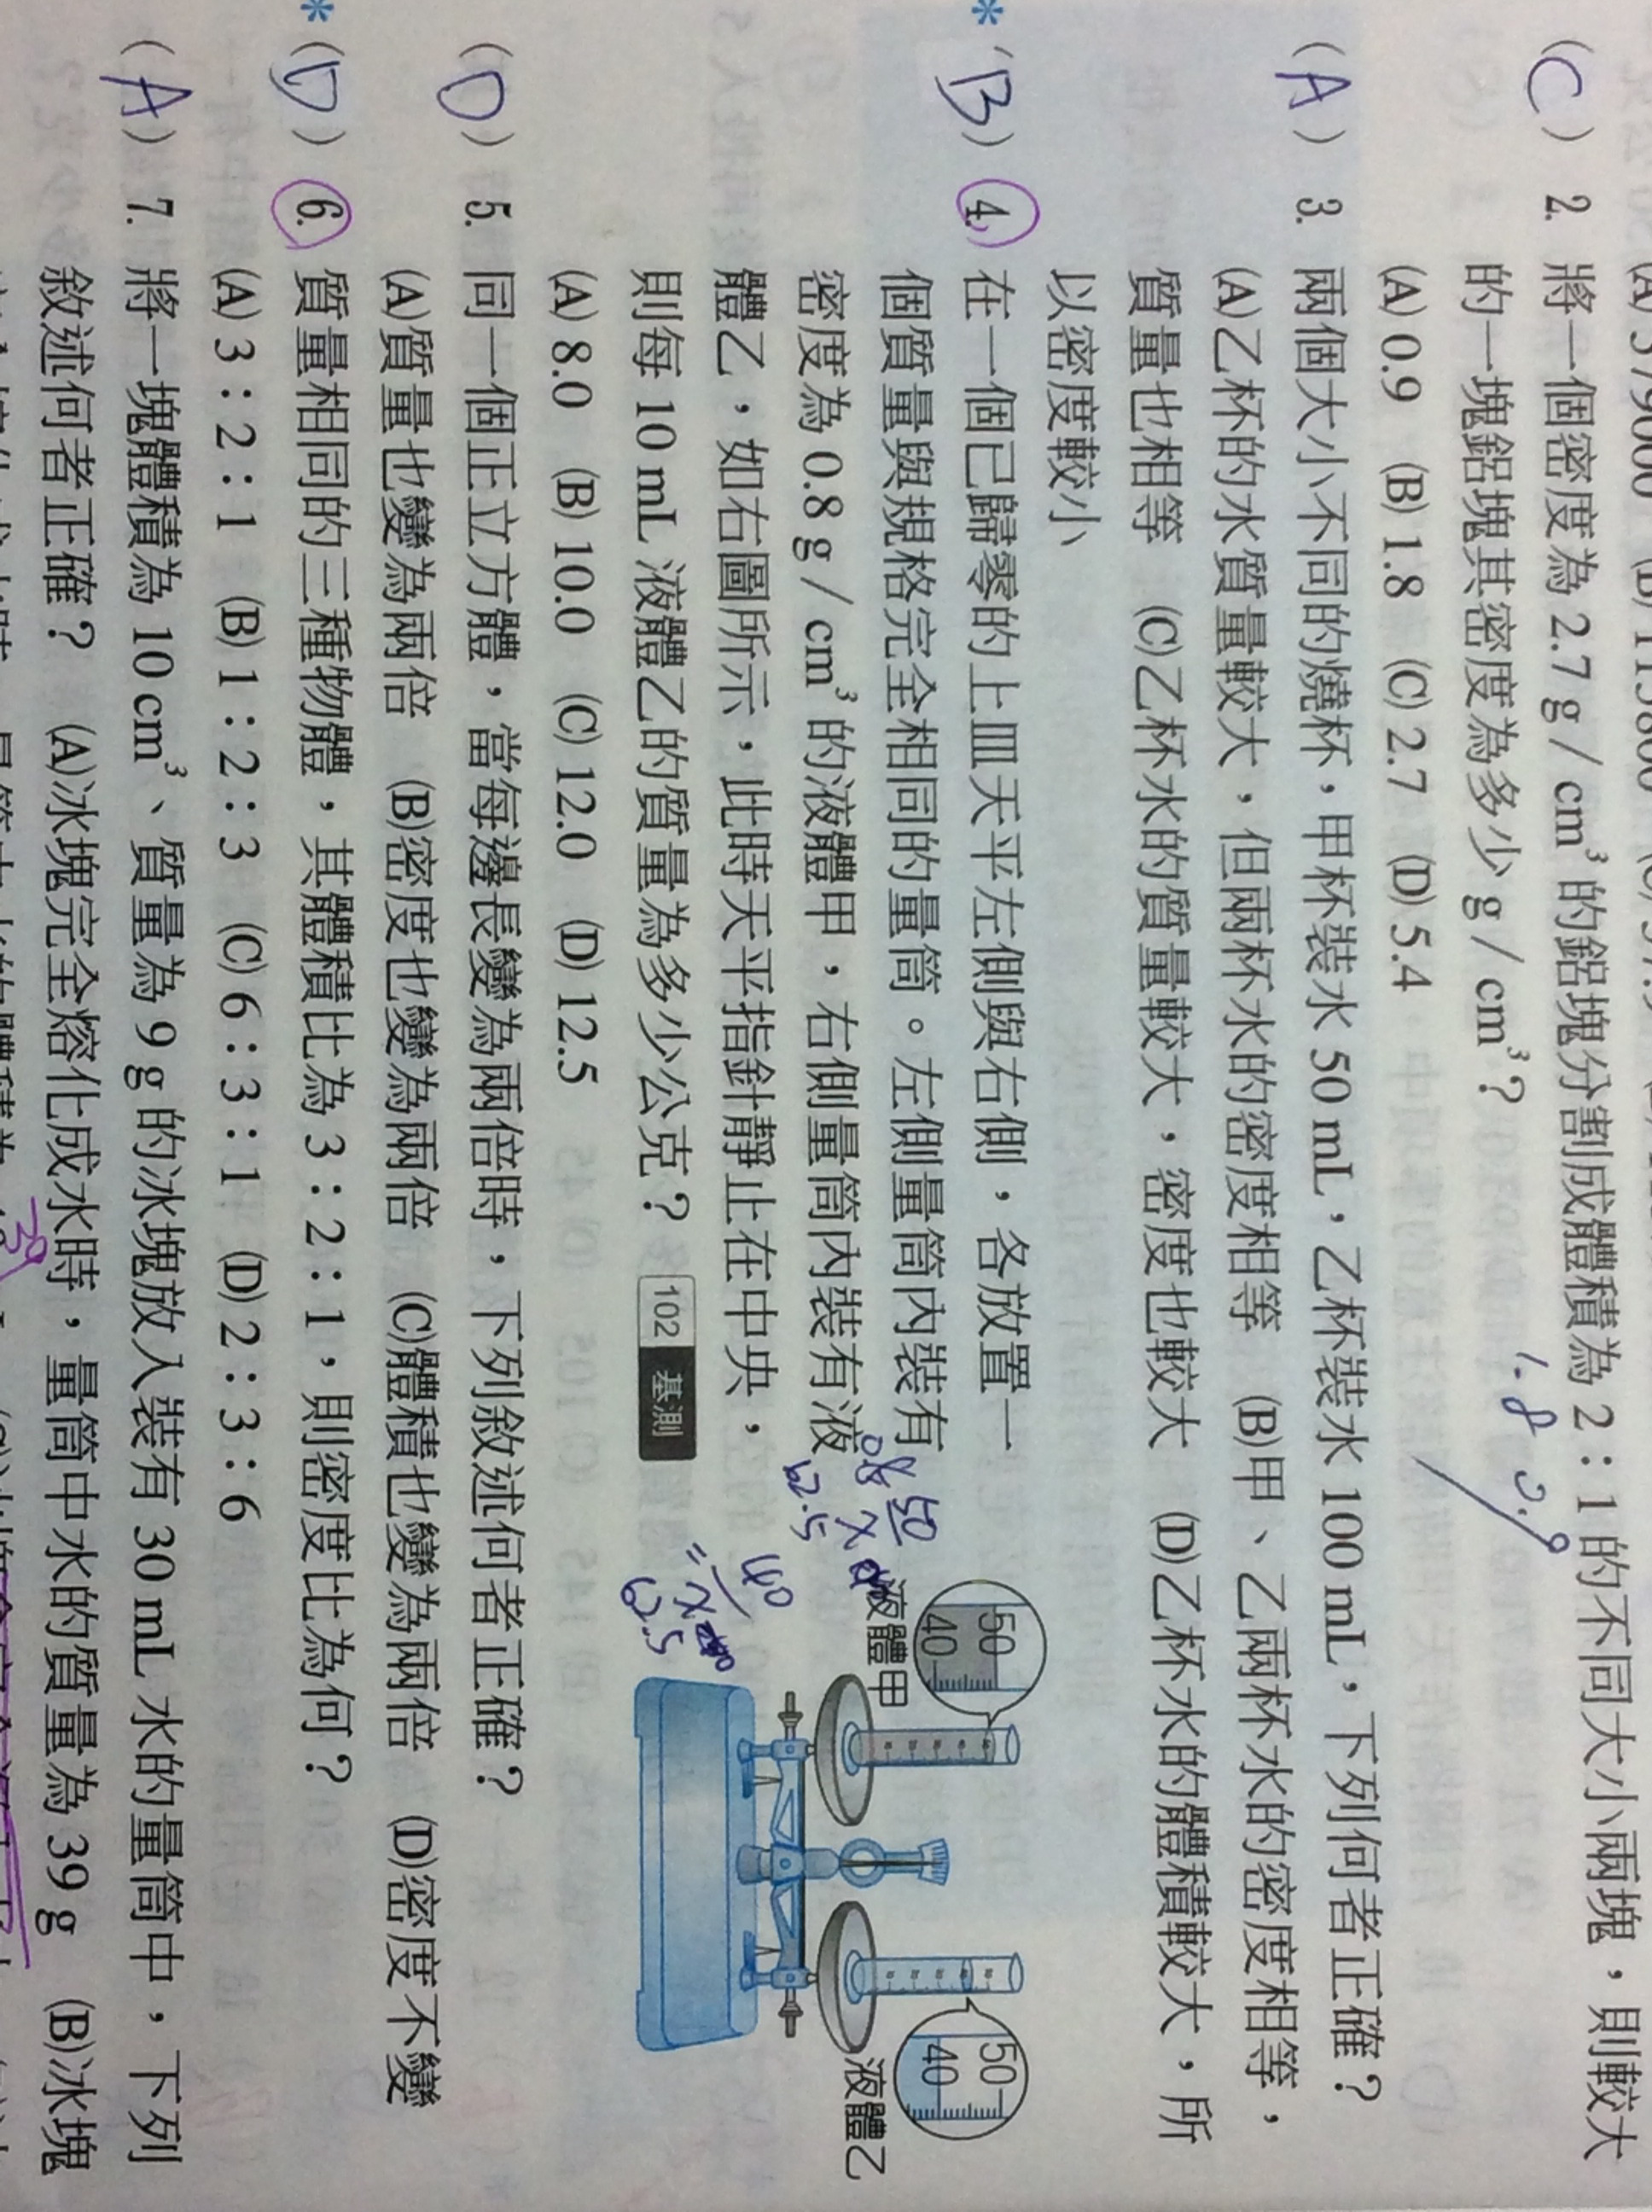 (C) 2. 將一個密度為 2.7 g / cm³ 的鋁塊分割成體積為 2：1 的不同大小兩塊，則較大
的一塊鋁塊其密度為多少 g / cm³？
(A) 0.9 (B) 1.8 (C) 2.7 (D) 5.4
1.8 0.9
(A) 3. 兩個大小不同的燒杯，甲杯裝水 50 mL，乙杯裝水 100 mL，下列何者正確？
(A)乙杯的水質量較大，但兩杯水的密度相等 (B)甲、乙兩杯水的密度相等，
質量也相等 (C)乙杯水的質量較大，密度也較大 (D)乙杯水的體積較大，所
以密度較小
* (B) 4. 在一個已歸零的上皿天平左側與右側，各放置一
個質量與規格完全相同的量筒。左側量筒內裝有
密度為 0.8 g / cm³ 的液體甲，右側量筒內裝有液
體乙，如右圖所示，此時天平指針靜止在中央，
則每 10 mL 液體乙的質量為多少公克？ 102 基測
(A) 8.0 (B) 10.0 (C) 12.0 (D) 12.5
50
40
液體甲
50
40
液體乙
50
62.5
40
62.5
(D) 5. 同一個正立方體，當每邊長變為兩倍時，下列敘述何者正確？
(A)質量也變為兩倍 (B)密度也變為兩倍 (C)體積也變為兩倍 (D)密度不變
* (D) 6. 質量相同的三種物體，其體積比為 3：2：1，則密度比為何？
(A) 3：2：1 (B) 1：2：3 (C) 6：3：1 (D) 2：3：6
(A) 7. 將一塊體積為 10 cm³、質量為 9 g 的冰塊放入裝有 30 mL 水的量筒中，下列
敘述何者正確？ (A)冰塊完全熔化成水時，量筒中水的質量為 39 g (B)冰塊
39